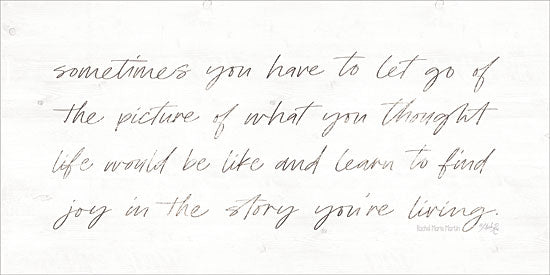 sometimes you have to let go of
the picture of what you thought
life would be like and learn to find
joy in the story you're living.
Rachel Marie Martin